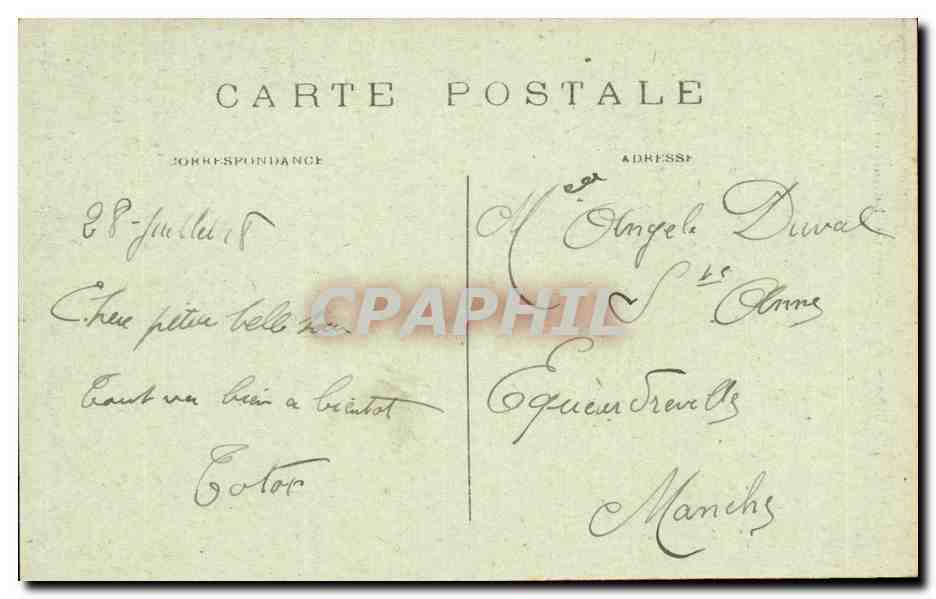 CARTE POSTALE
CORRESPONDANCE
ADRESSE
28 - Juillet 18
Chère petite belle soeur
Tout va bien a bientot
Totor
Melle Angele Duval
Ste Anne
Equeurdreville
Manche
CPAPHIL